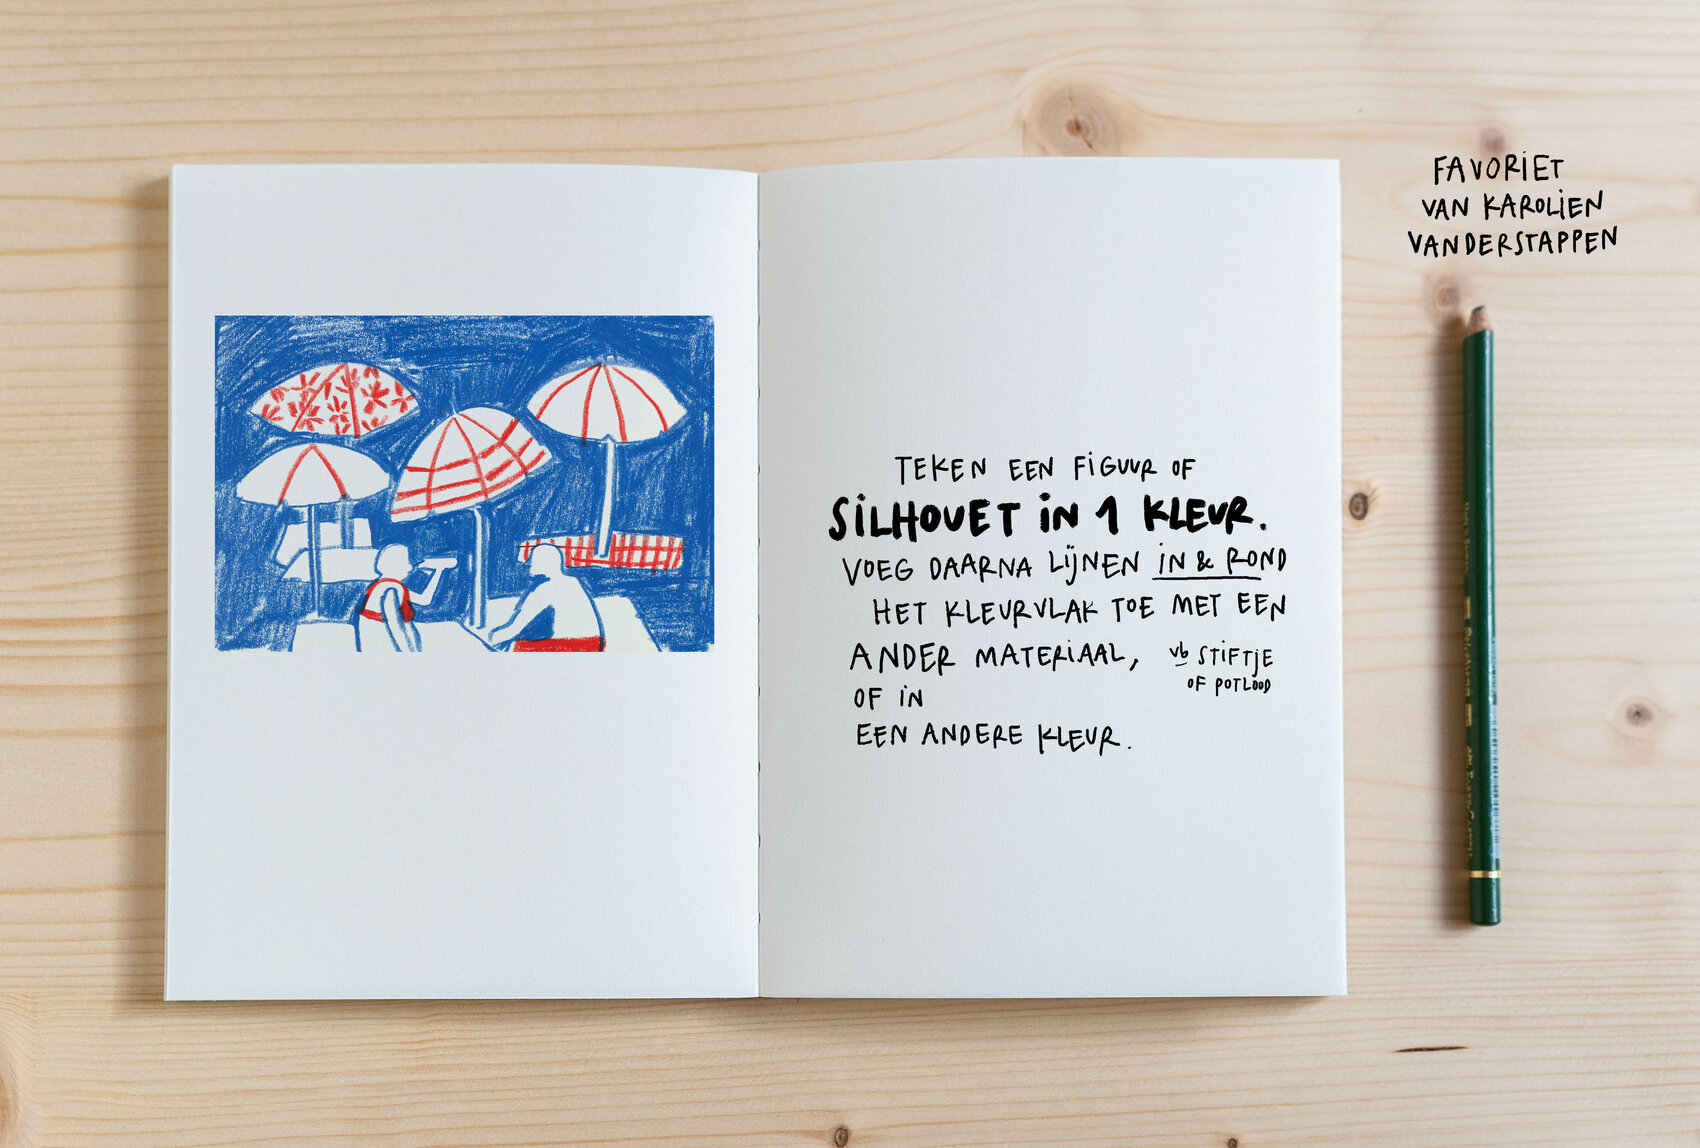 FAVORIET
VAN KAROLIEN
VANDERSTAPPEN
TEKEN EEN FIGUUR OF
SILHOUET IN 1 KLEUR.
VOEG DAARNA LIJNEN IN & ROND
HET KLEURVLAK TOE MET EEN
ANDER MATERIAAL, vb STIFTJE
OF POTLOOD
OF IN
EEN ANDERE KLEUR.